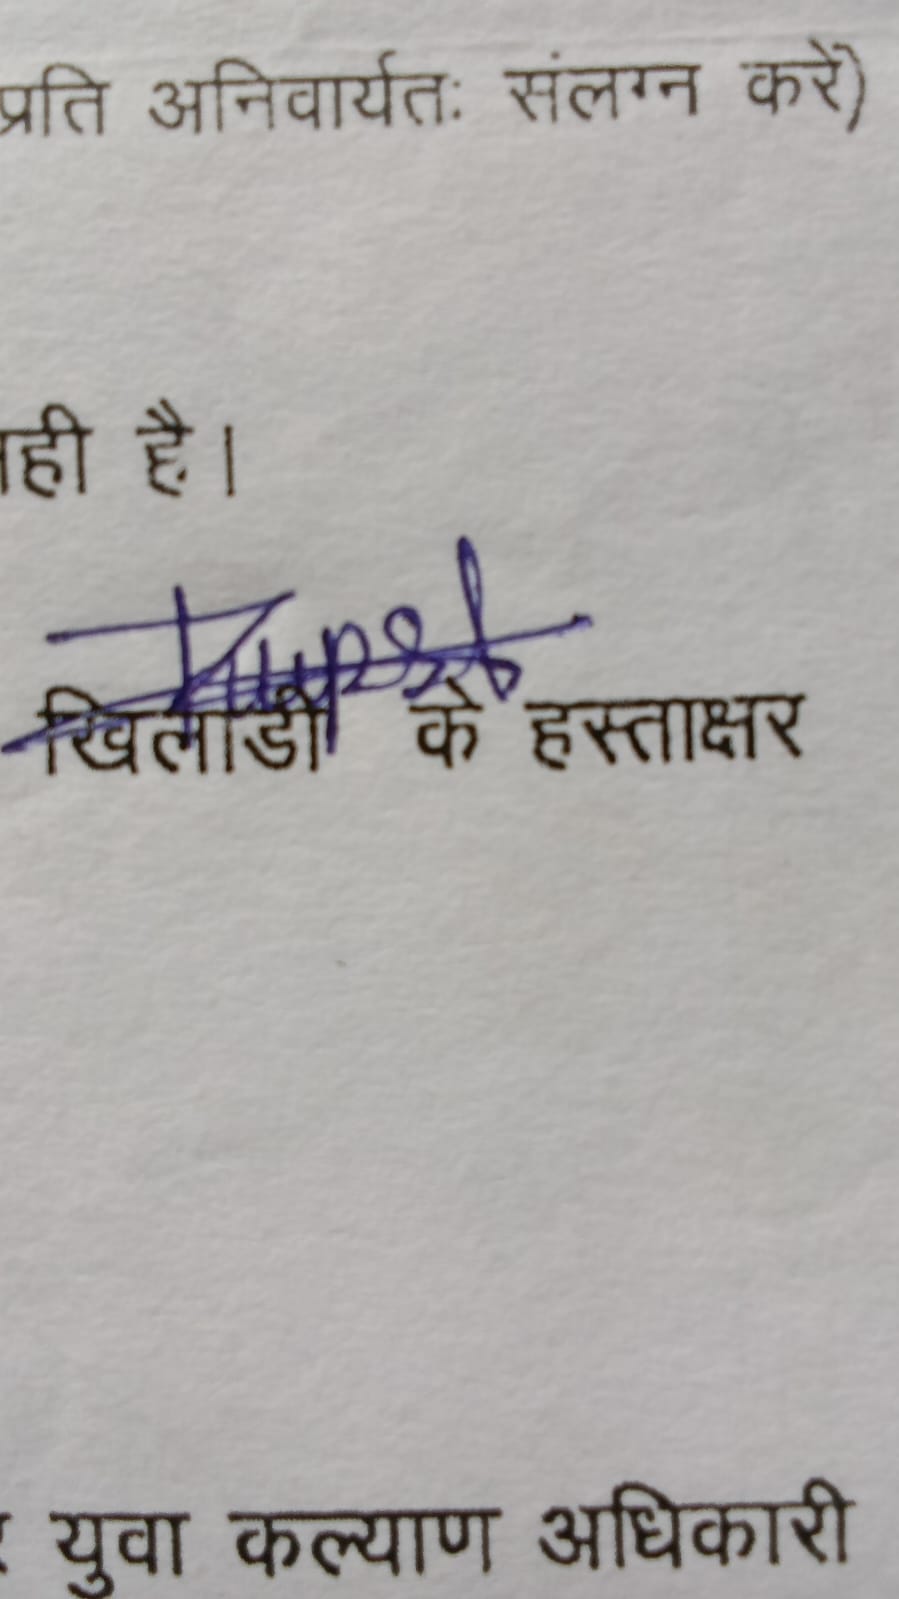 प्रति अनिवार्यतः संलग्न करें)
है।
खिलाडी के हस्ताक्षर
युवा कल्याण अधिकारी